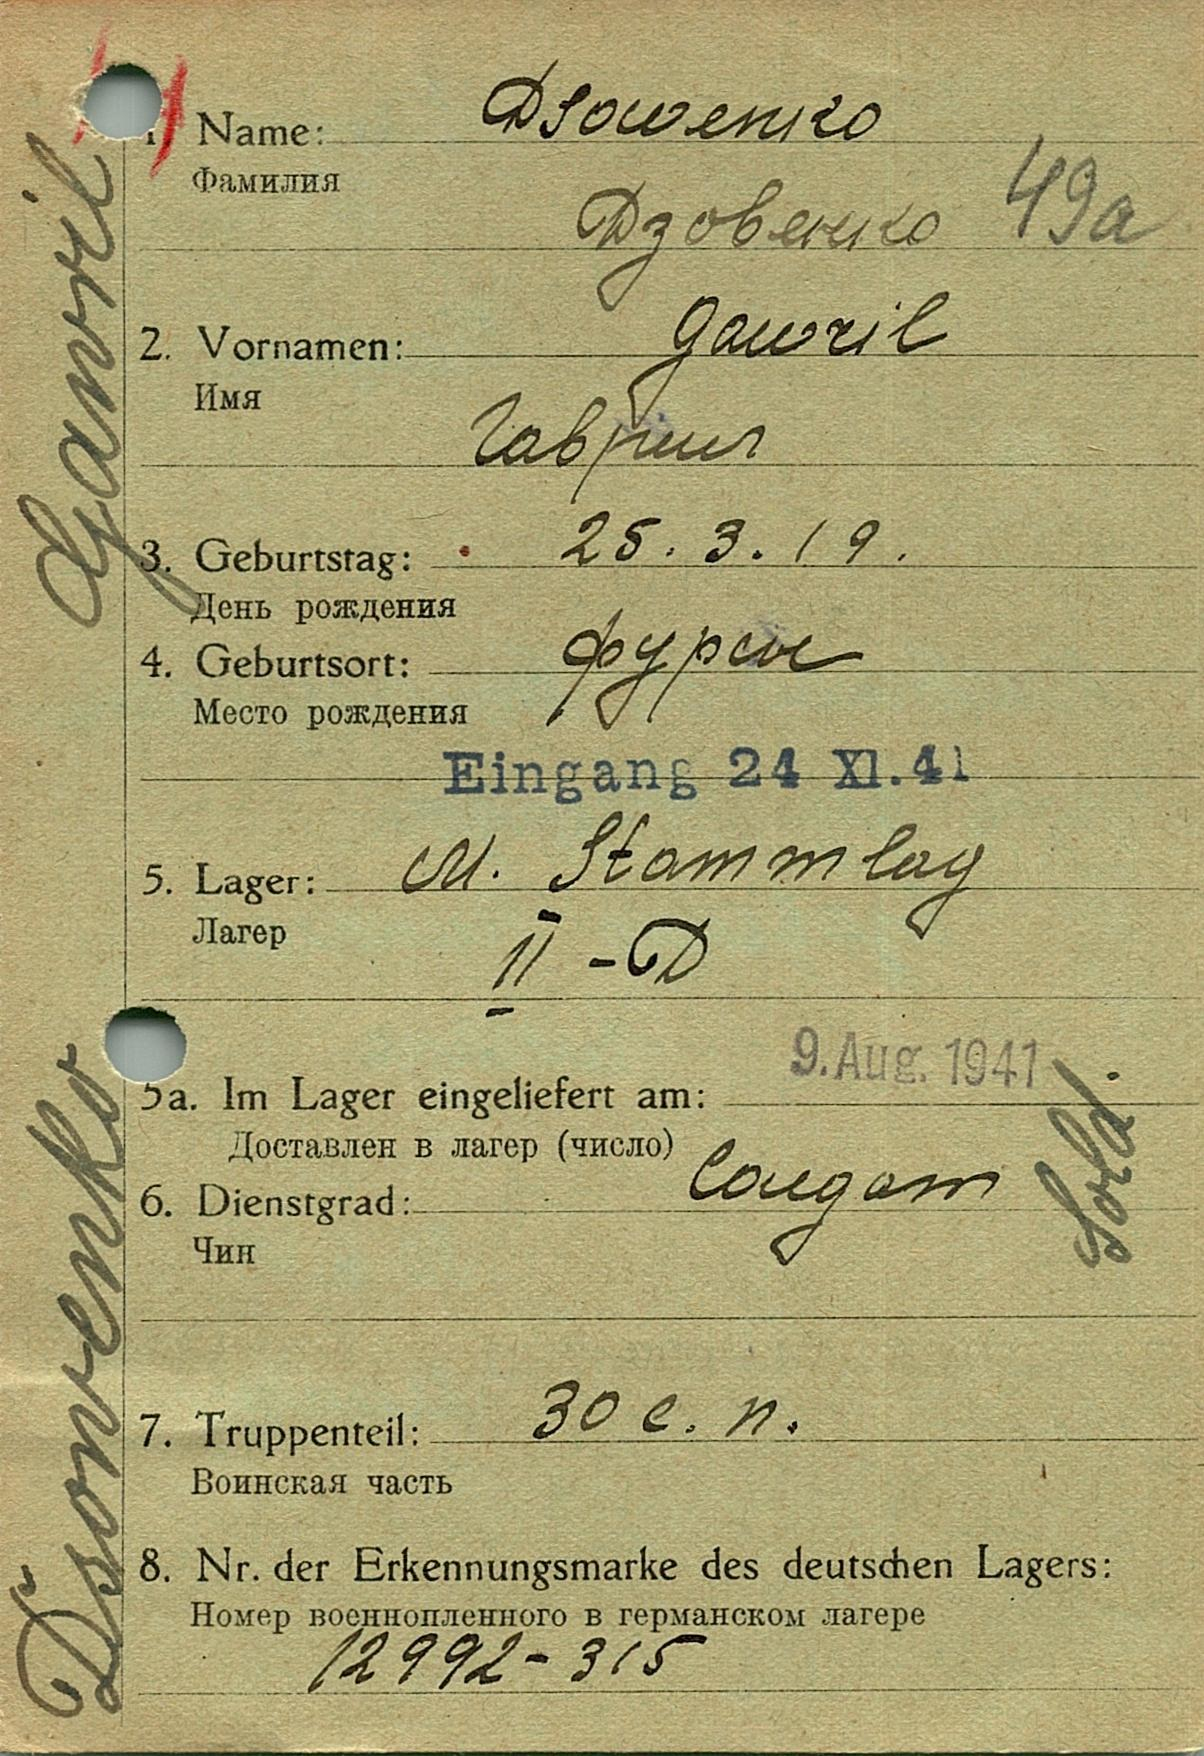 1. Name: Dsowenko
Фамилия
Дзовенко 49a
2. Vornamen: Gawril
Имя
Гаврил
3. Geburtstag: 25. 3. 19.
День рождения
4. Geburtsort:
Место рождения
Eingang 24 XI. 41
5. Lager: M. Stammlag
Лагер
II - D
9. Aug. 1941
5a. Im Lager eingeliefert am:
Доставлен в лагер (число)
6. Dienstgrad: Солдат Sold.
Чин
7. Truppenteil: 30 с. п.
Воинская часть
8. Nr. der Erkennungsmarke des deutschen Lagers:
Номер военнопленного в германском лагере
12992 - 315
Dsowenko Gawril